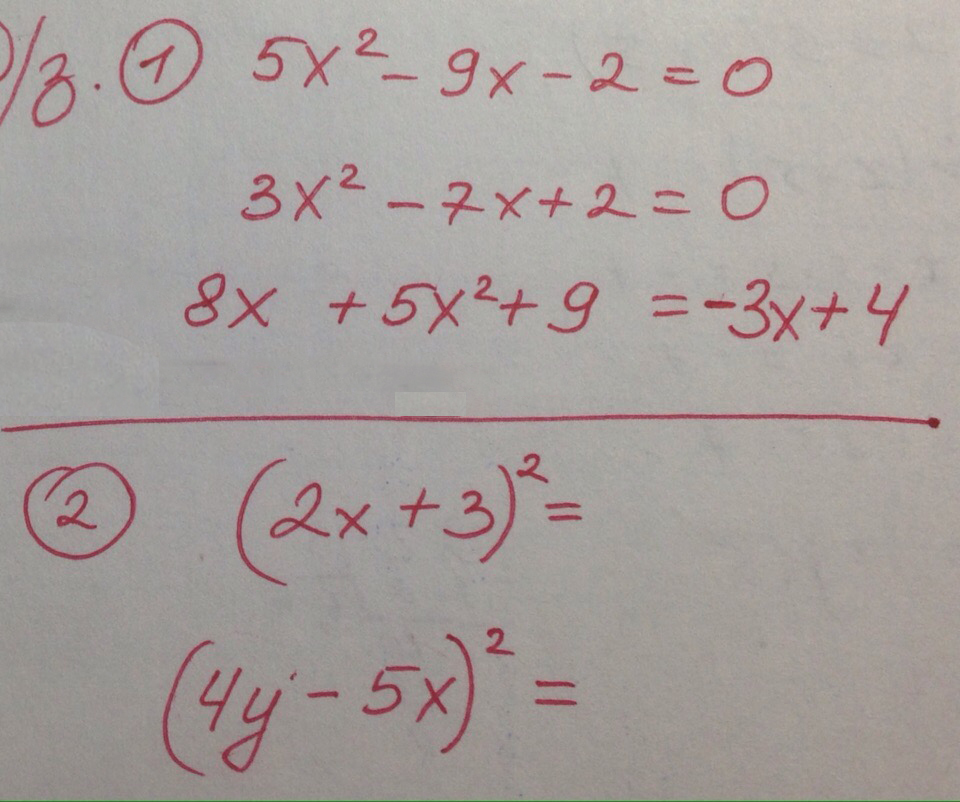 Д/з. ① 5x² - 9x - 2 = 0
3x² - 7x + 2 = 0
8x + 5x² + 9 = -3x + 4
② (2x + 3)² =
(4y - 5x)² =